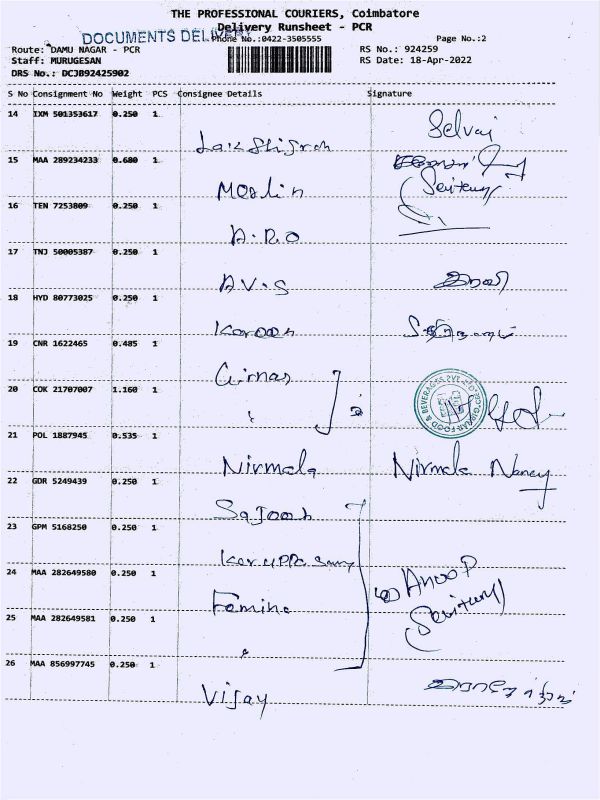 THE PROFESSIONAL COURIERS, Coimbatore
Delivery Runsheet - PCR
DOCUMENTS DELIVERY
Phone No.:0422-3505555 Page No.:2
Route: DAMU NAGAR - PCR RS No.: 924259
Staff: MURUGESAN RS Date: 18-Apr-2022
DRS No.: DCJB92425902
S No Consignment No Weight PCS Consignee Details Signature
14 IXM 501353617 0.250 1
Selvaj
15 MAA 289234233 0.680 1
Meslin
16 TEN 7253809 0.250 1
A.R.O
17 TNJ 50005387 0.250 1
A V.S
18 HYD 80773025 0.250 1
Karoon
19 CNR 1622465 0.485 1
Girnar
20 COK 21707007 1.160 1
21 POL 1887945 0.535 1
Nirmala Nirmala Nancy
22 GDR 5249439 0.250 1
Sajoosh
23 GPM 5168250 0.250 1
Karuppa Samy
24 MAA 282649580 0.250 1
Anoop
Femina
25 MAA 282649581 0.250 1
26 MAA 856997745 0.250 1
Vijay